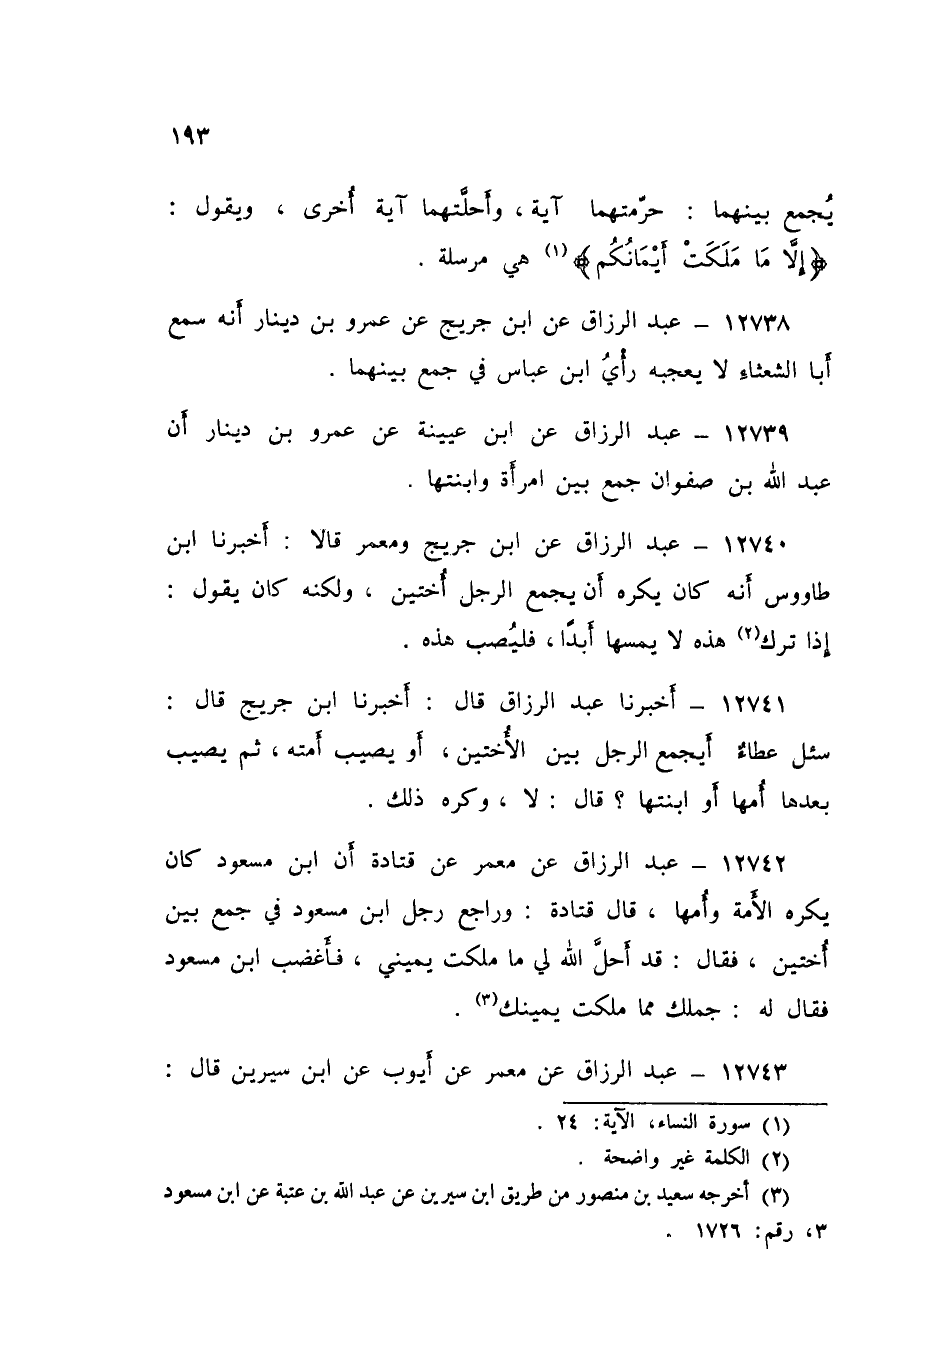 ١٩٣
يُجمع بينهما : حرّمتهما آية ، وأَحلَّتهما آية أُخرى ، ويقول :
﴿إِلَّا مَا مَلَكَتْ أَيْمَانُكُم﴾(١) هي مرسلة .
١٢٧٣٨ – عبد الرزاق عن ابن جريج عن عمرو بن دينار أَنه سمع
أَبا الشعثاء لا يعجبه رأْيُ ابن عباس في جمع بينهما .
١٢٧٣٩ – عبد الرزاق عن ابن عيينة عن عمرو بن دينار أَن
عبد الله بن صفوان جمع بين امرأَة وابنتها .
١٢٧٤٠ – عبد الرزاق عن ابن جريج ومعمر قالا : أَخبرنا ابن
طاووس أَنه كان يكره أَن يجمع الرجل أُختين ، ولكنه كان يقول :
إِذا ترك(٢) هذه لا يمسها أَبدًا ، فليُصب هذه .
١٢٧٤١ – أَخبرنا عبد الرزاق قال : أَخبرنا ابن جريج قال :
سئل عطاءٌ أَيجمع الرجل بين الأُختين ، أَو يصيب أَمته ، ثم يصيب
بعدها أُمها أَو ابنتها ؟ قال : لا ، وكره ذلك .
١٢٧٤٢ – عبد الرزاق عن معمر عن قتادة أَن ابن مسعود كان
يكره الأَمة وأُمها ، قال قتادة : وراجع رجل ابن مسعود في جمع بين
أُختين ، فقال : قد أَحلَّ الله لي ما ملكت يميني ، فأَغضب ابن مسعود
فقال له : جملك مما ملكت يمينك(٣) .
١٢٧٤٣ – عبد الرزاق عن معمر عن أَيوب عن ابن سيرين قال :
(١) سورة النساء، الآية: ٢٤ .
(٢) الكلمة غير واضحة .
(٣) أخرجه سعيد بن منصور من طريق ابن سيرين عن عبد الله بن عتبة عن ابن مسعود
٣، رقم: ١٧٢٦ .